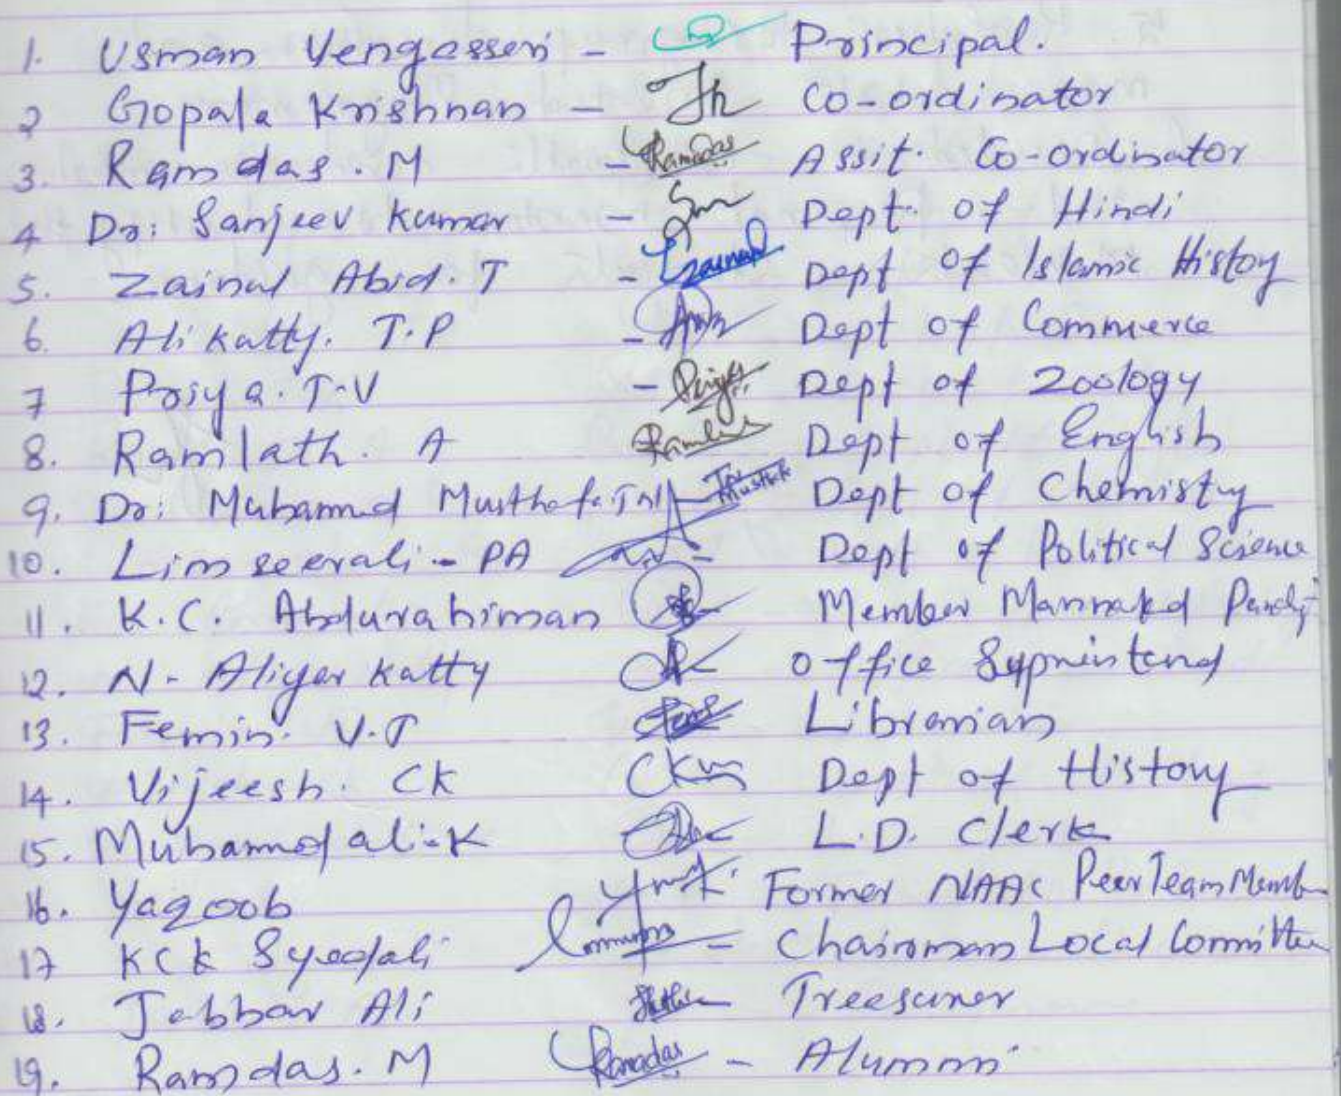 1. Usman Yengasseri - Principal.
2 Gopala Krishnan - Co-ordinator
3. Ramdas. M - Ramdas Assit. Co-ordinator
4 Dr: Sanjeev Kumar - Dept. of Hindi
5. Zainul Abid. T - Zainul Dept of Islamic History
6. Ali Katty. T.P - Dept of Commerce
7 Priya. T.V - Priya Dept of Zoology
8. Ramlath. A Dept of English
9. Dr: Muhammed Musthafa. TN Dept of Chemistry
10. Limseerali - PA - Dept of Political Science
11. K.C. Abdurahiman Member
12. N. Aliyar Katty Office
13. Femin. V.T Librarian
14. Vijeesh. CK Dept of History
15. Muhammed ali.K L.D. Clerk
16. Yaqoob Former NAAC Peer Team Member
17 KCK Syedali - Chairman Local Committee
18. Jabbar Ali Treesurer
19. Ramdas. M Ramdas - Alumni